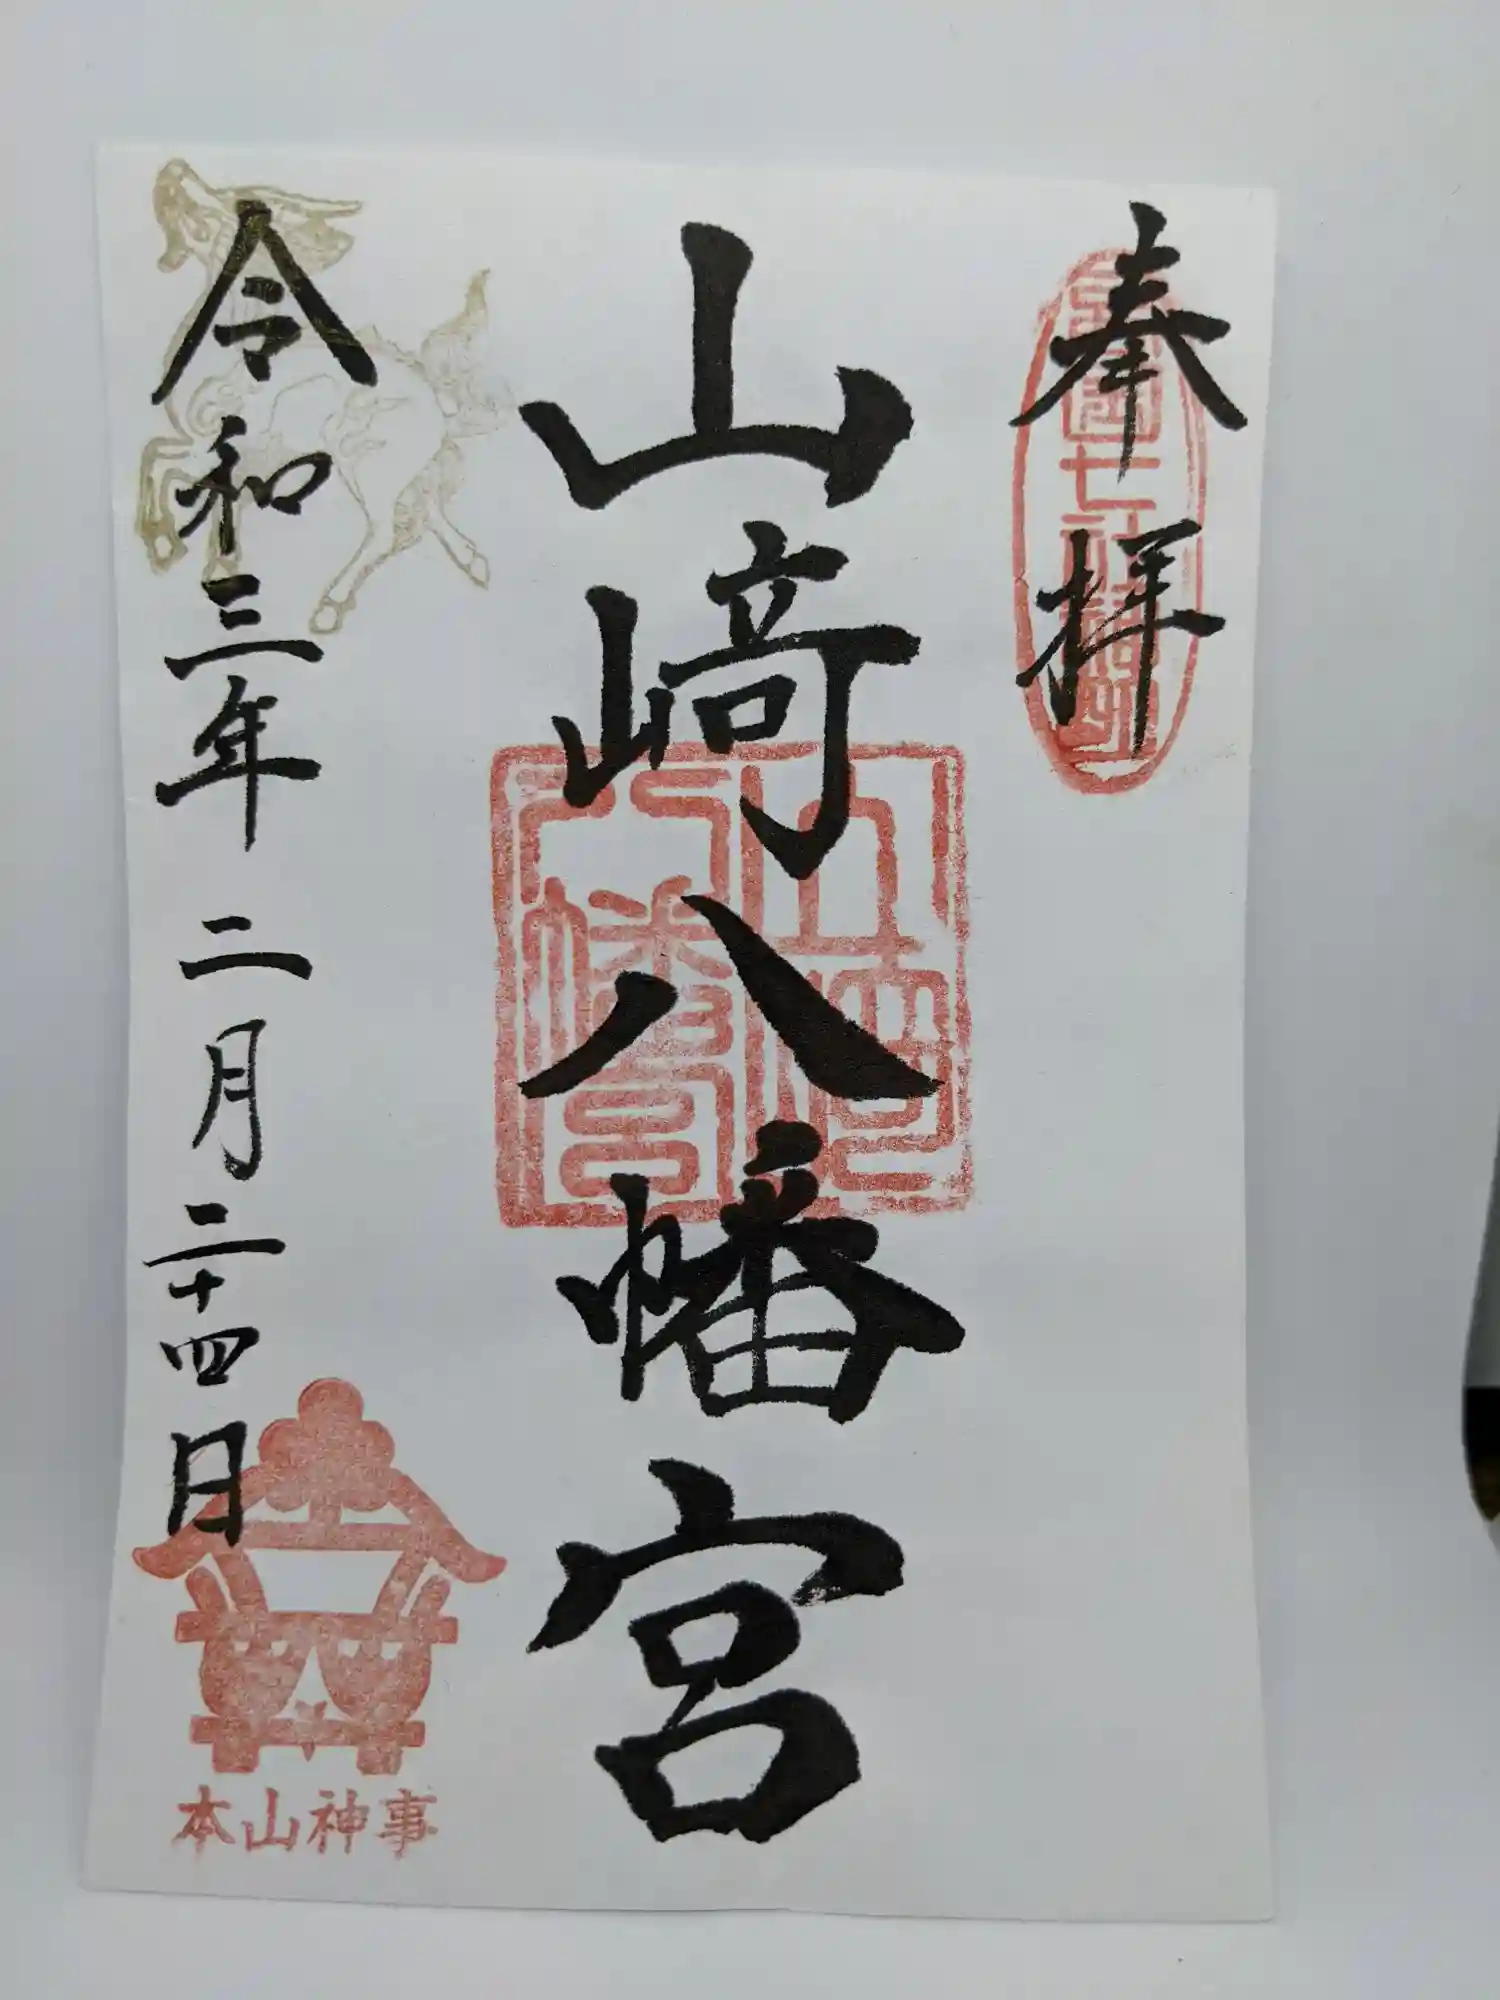 奉拝
山﨑八幡宮
令和三年二月二十四日
山﨑
八幡宮
本山神事